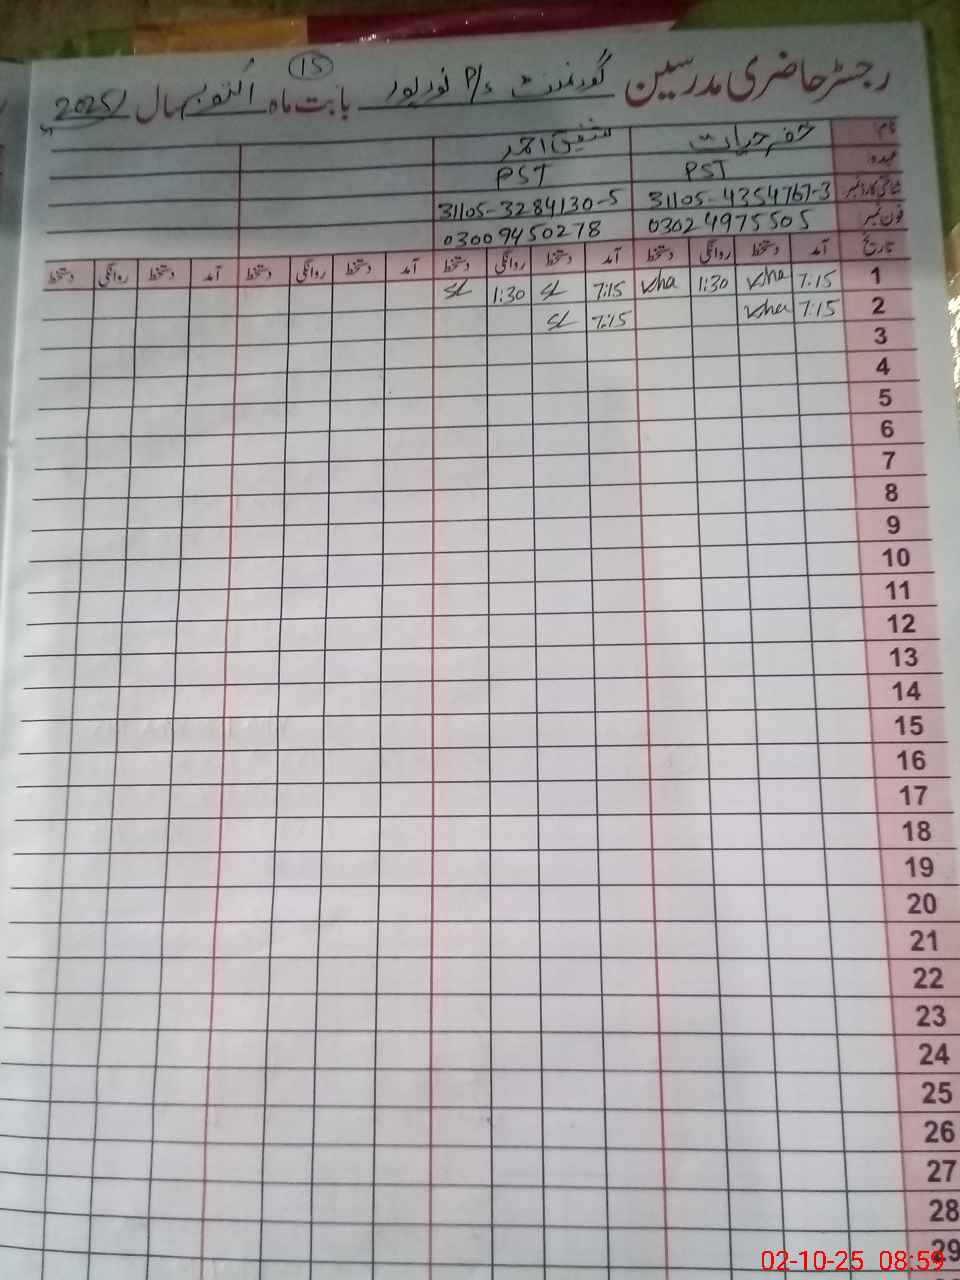 رجسٹر حاضری مدرسین گورنمنٹ P/S نور پور بابت ماہ اکتوبر سال 2025
15
نام خضر حیات شفیق احمد
عہدہ PST PST
شناختی کارڈ نمبر 31105-4354767-3 31105-3284130-5
فون نمبر 03024975505 03009450278
تاریخ آمد دستخط روانگی دستخط آمد دستخط روانگی دستخط آمد دستخط روانگی دستخط آمد دستخط روانگی دستخط
1 7:15 Kha 1:30 Kha 7:15 SL 1:30 SL
2 7:15 Kha 7:15 SL
3
4
5
6
7
8
9
10
11
12
13
14
15
16
17
18
19
20
21
22
23
24
25
26
27
28
29
02-10-25 08:59